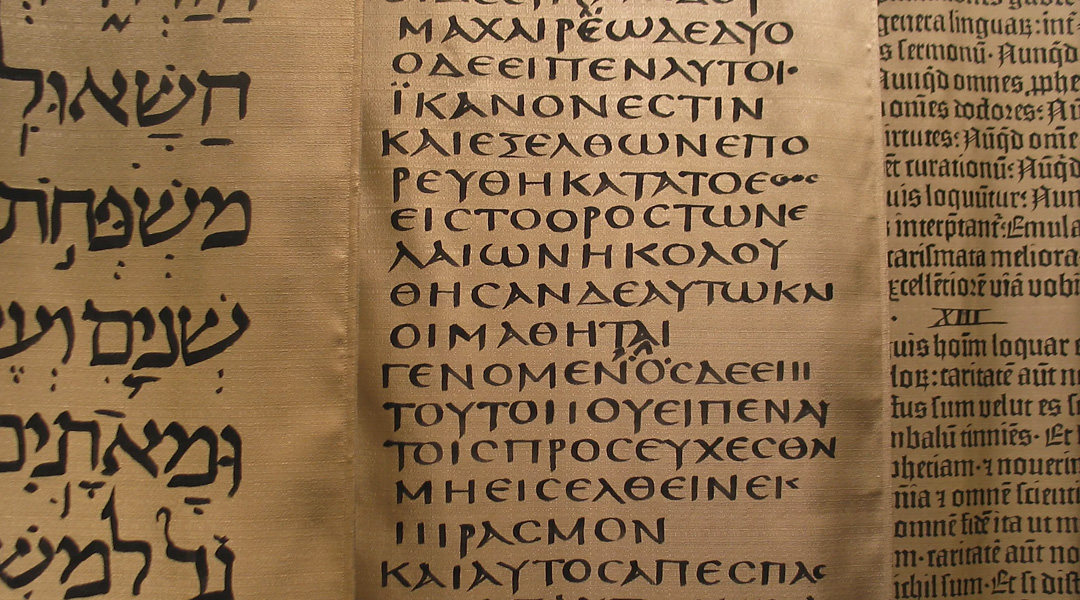 הַשָּׁאוּלִ
מִשְׁפְּחֹת
שְׁנַיִם וְעֶשְׂ
וּמָאתָיִם
גָד לְמִשְׁ
ΜΑΧΑΙΡΕΩΔΕΔΥΟ
ΟΔΕΕΙΠΕΝΑΥΤΟΙ·
ΪΚΑΝΟΝΕϹΤΙΝ
ΚΑΙΕΞΕΛΘΩΝΕΠΟ
ΡΕΥΘΗΚΑΤΑΤΟΕΘΟϹ
ΕΙϹΤΟΟΡΟϹΤΩΝΕ
ΛΑΙΩΝΗΚΟΛΟΥ
ΘΗϹΑΝΔΕΑΥΤΩΚΑΙ
ΟΙΜΑΘΗΤΑΙ
ΓΕΝΟΜΕΝΟϹΔΕΕΠΙ
ΤΟΥΤΟΠΟΥΕΙΠΕΝΑΥ
ΤΟΙϹΠΡΟϹΕΥΧΕϹΘΑΙ
ΜΗΕΙϹΕΛΘΕΙΝΕΙϹ
ΠΙΡΑϹΜΟΝ
ΚΑΙΑΥΤΟϹΑΠΕϹΠΑϹ
genera linguaꝝ: int̄
s sermonū· Nunq̄d
Nunq̄d omnes ꝓphe
om̄es doctores: Nū
irtutes: Nūq̄d om̄e
ēt curationū: Nūq̄d
uis loquūtur: Nun
interp̄tant̄: Emula
carismata meliora·
xcellētiorē viā vobi
XIII
uis hoīm loquar e
loꝝ: caritatē aūt n
tus sum velut es s
mbalū tinniēs· Et
phetiam· ⁊ noueri
nia ⁊ omnē scienti
omnē fidē ita ut m
m· caritatē aūt no
ichil sum· Et si dist